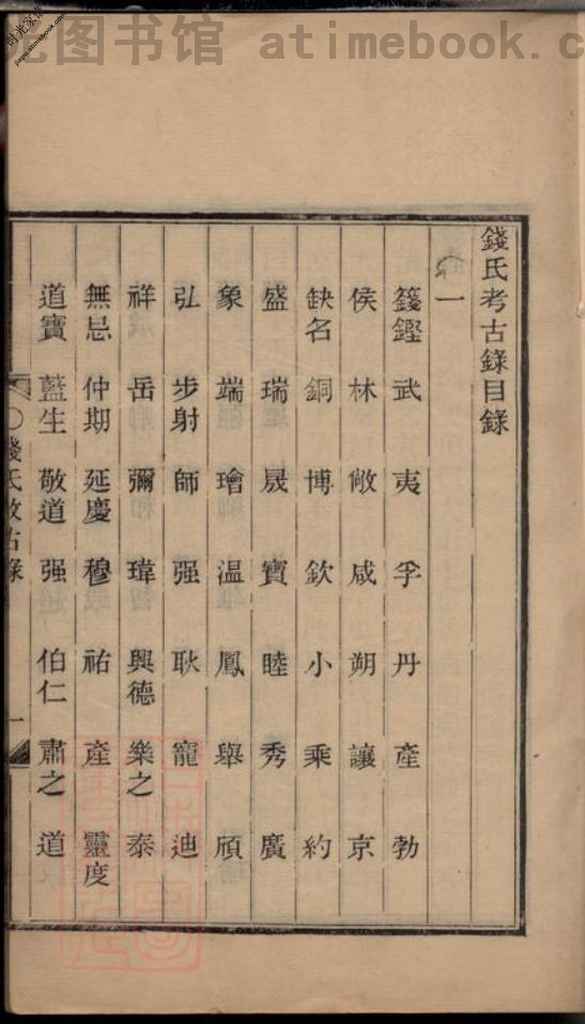 光图书馆 atimebook.c
錢氏考古錄目錄
一
籛鏗 武 夷 孚 丹 產 勃
侯 林 敞 咸 朔 讓 京
缺名 銅 博 欽 小 乘 約
盛 瑞 晟 寶 睦 秀 廣
象 端 璯 温 鳳 舉 頎
弘 步射 師 强 耿 寵 迪
祥 岳 彌 瑋 興德 樂之 泰
無忌 仲期 延慶 穆 祐 產 靈度
道寶 藍生 敬道 强 伯仁 肅之 道
錢氏攷古錄
一